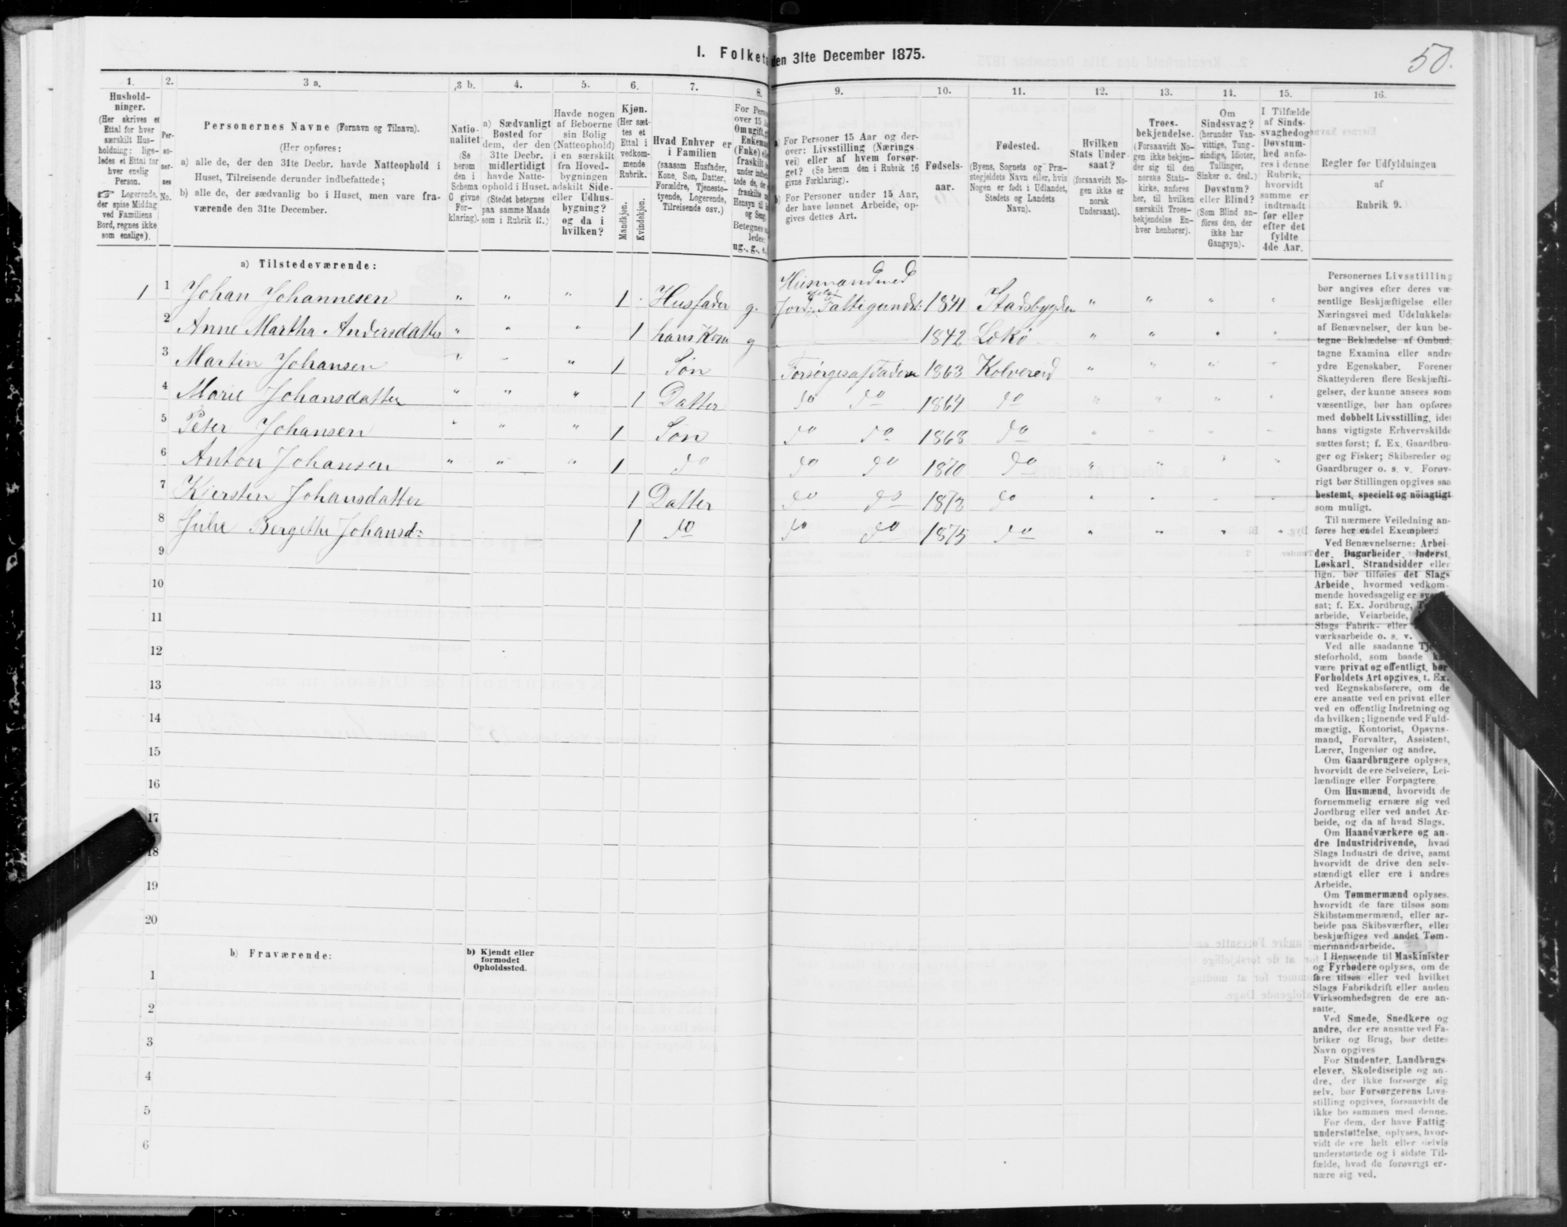 I. Folket den 31te December 1875.
50.
1.
Hushold-
ninger.
(Her skrives et
Ettal for hver
særskilt Hus-
holdning; lige-
ledes et Ettal for
hver enslig
Person.
☞ Logerende,
der spise Middag
ved Familiens
Bord, regnes ikke
som enslige).
2.
Per-
so-
ner-
nes
No.
3 a.
Personernes Navne (Fornavn og Tilnavn).
(Her opføres:
a) alle de, der den 31te Decbr. havde Natteophold i
Huset, Tilreisende derunder indbefattede;
b) alle de, der sædvanlig bo i Huset, men vare fra-
værende den 31te December.
3 b.
Natio-
nalitet
(Se
herom
den i
Schema
C givne
For-
klaring).
4.
a) Sædvanligt
Bosted for
dem, der den
31te Decbr.
midlertidigt
havde Natte-
ophold i Huset.
(Stedet betegnes
paa samme Maade
som i Rubrik 11.)
5.
Havde nogen
af Beboerne
sin Bolig
(Natteophold)
i en særskilt
fra Hoved-
bygningen
adskilt Side-
eller Udhus-
bygning?
og da i
hvilken?
6.
Kjøn.
(Her sæt-
tes et
Ettal i
vedkom-
mende
Rubrik.
Mandkjøn.
Kvindekjøn.
7.
Hvad Enhver er
i Familien
(saasom Husfader,
Kone, Søn, Datter,
Forældre, Tjeneste-
tyende, Logerende,
Tilreisende osv.)
8.
For Perso
over 15
Om ugift, g
Enkema
(Enke) el
fraskilt
ug., g., e.
9.
a) For Personer 15 Aar og der-
over: Livsstilling (Nærings-
vei) eller af hvem forsør-
get? (Se herom den i Rubrik 16
givne Forklaring).
b) For Personer under 15 Aar,
der have lønnet Arbeide, op-
gives dettes Art.
10.
Fødsels-
aar.
11.
Fødested.
(Byens, Sognets og Præ-
stegjeldets Navn eller, hvis
Nogen er født i Udlandet,
Stedets og Landets
Navn).
12.
Hvilken
Stats Under-
saat?
(forsaavidt No-
gen ikke er
norsk
Undersaat).
13.
Troes-
bekjendelse.
(Forsaavidt No-
gen ikke bekjen-
der sig til den
norske Stats-
kirke, anføres
her, til hvilken
særskilt Troes-
bekjendelse En-
hver henhører).
14.
Om
Sindssvag?
(herunder Van-
vittige, Tung-
sindige, Idioter,
Tullinger,
Sinker o. desl.)
Døvstum?
eller Blind?
(Som Blind an-
føres den, der
ikke har
Gangsyn).
15.
I Tilfælde
af Sinds-
svaghed og
Døvstum-
hed anfø-
res i denne
Rubrik,
hvorvidt
samme er
indtraadt
før eller
efter det
fyldte
4de Aar.
16.
Regler for Udfyldningen
af
Rubrik 9.
a) Tilstedeværende:
Husmand med
1 1 Johan Johannesen " " " 1 Husfader g. Jord Fattigunds: 1841 Stadsbygden " " " "
2 Anne Martha Andersdatter " " " 1 hans Kone g 1842 Lekø " " " "
3 Martin Johansen " " " 1 Søn Forsørges af Faderen 1863 Kolvereid " " " "
4 Marie Johansdatter " " " 1 Datter do do 1864 do " " " "
5 Peter Johansen " " " 1 Søn do do 1868 do " " " "
6 Anton Johansen " " " 1 do do do 1870 do " " " "
7 Kjersten Johansdatter 1 Datter do do 1873 do " " " "
8 Julie Bergitte Johansd: 1 do do do 1875 do " " " "
9
10
11
12
13
14
15
16
17
18
19
20
b) Fraværende:
b) Kjendt eller
formodet
Opholdssted.
1
2
3
4
5
6
Personernes Livsstilling
bør angives efter deres væ-
sentlige Beskjæftigelse eller
Næringsvei med Udelukkelse
af Benævnelser, der kun be-
tegne Beklædelse af Ombud,
tagne Examina eller andre
ydre Egenskaber. Forener
Skatteyderen flere Beskjæfti-
gelser, der kunne ansees som
væsentlige, bør han opføres
med dobbelt Livsstilling, idet
hans vigtigste Erhvervskilde
sættes først; f. Ex. Gaardbru-
ger og Fisker; Skibsreder og
Gaardbruger o. s. v. Forøv-
rigt bør Stillingen opgives saa
bestemt, specielt og nöiagtigt
som muligt.
Til nærmere Veiledning an-
føres her endel Exempler:
Ved Benævnelserne: Arbei-
der, Dagarbeider, Inderst,
Løskarl, Strandsidder eller
lign. bør tilføies det Slags
Arbeide, hvormed vedkom-
mende hovedsagelig er
sat; f. Ex. Jordbrug,
arbeide, Veiarbeide,
Slags Fabrik- eller
værksarbeide o. s. v.
Ved alle saadanne Tje-
steforhold, som baade
være privat og offentligt, bør
Forholdets Art opgives, t. Ex.
ved Regnskabsførere, om de
ere ansatte ved en privat eller
ved en offentlig Indretning og
da hvilken; lignende ved Fuld-
mægtig, Kontorist, Opsyns-
mand, Forvalter, Assistent,
Lærer, Ingeniør og andre.
Om Gaardbrugere oplyses,
hvorvidt de ere Selveiere, Lei-
lændinge eller Forpagtere.
Om Husmænd, hvorvidt de
fornemmelig ernære sig ved
Jordbrug eller ved andet Ar-
beide, og da af hvad Slags.
Om Haandværkere og an-
dre Industridrivende, hvad
Slags Industri de drive, samt
hvorvidt de drive den selv-
stændigt eller ere i andres
Arbeide.
Om Tømmermænd oplyses,
hvorvidt de fare tilsøs som
Skibstømmermænd, eller ar-
beide paa Skibsværfter, eller
beskjæftiges ved andet Tøm-
mermandsarbeide.
I Henseende til Maskinister
og Fyrbødere oplyses, om de
fare tilsøs eller ved hvilket
Slags Fabrikdrift eller anden
Virksomhedsgren de ere an-
satte.
Ved Smede, Snedkere og
andre, der ere ansatte ved Fa-
briker og Brug, bør dettes
Navn opgives
For Studenter, Landbrugs-
elever, Skoledisciple og an-
dre, der ikke forsørge sig
selv, bør Forsørgerens Livs-
stilling opgives, forsaavidt de
ikke bo sammen med denne.
For dem, der have Fattig-
understøttelse, oplyses, hvor-
vidt de ere helt eller delvis
understøttede og i sidste Til-
fælde, hvad de forøvrigt er-
nære sig ved.